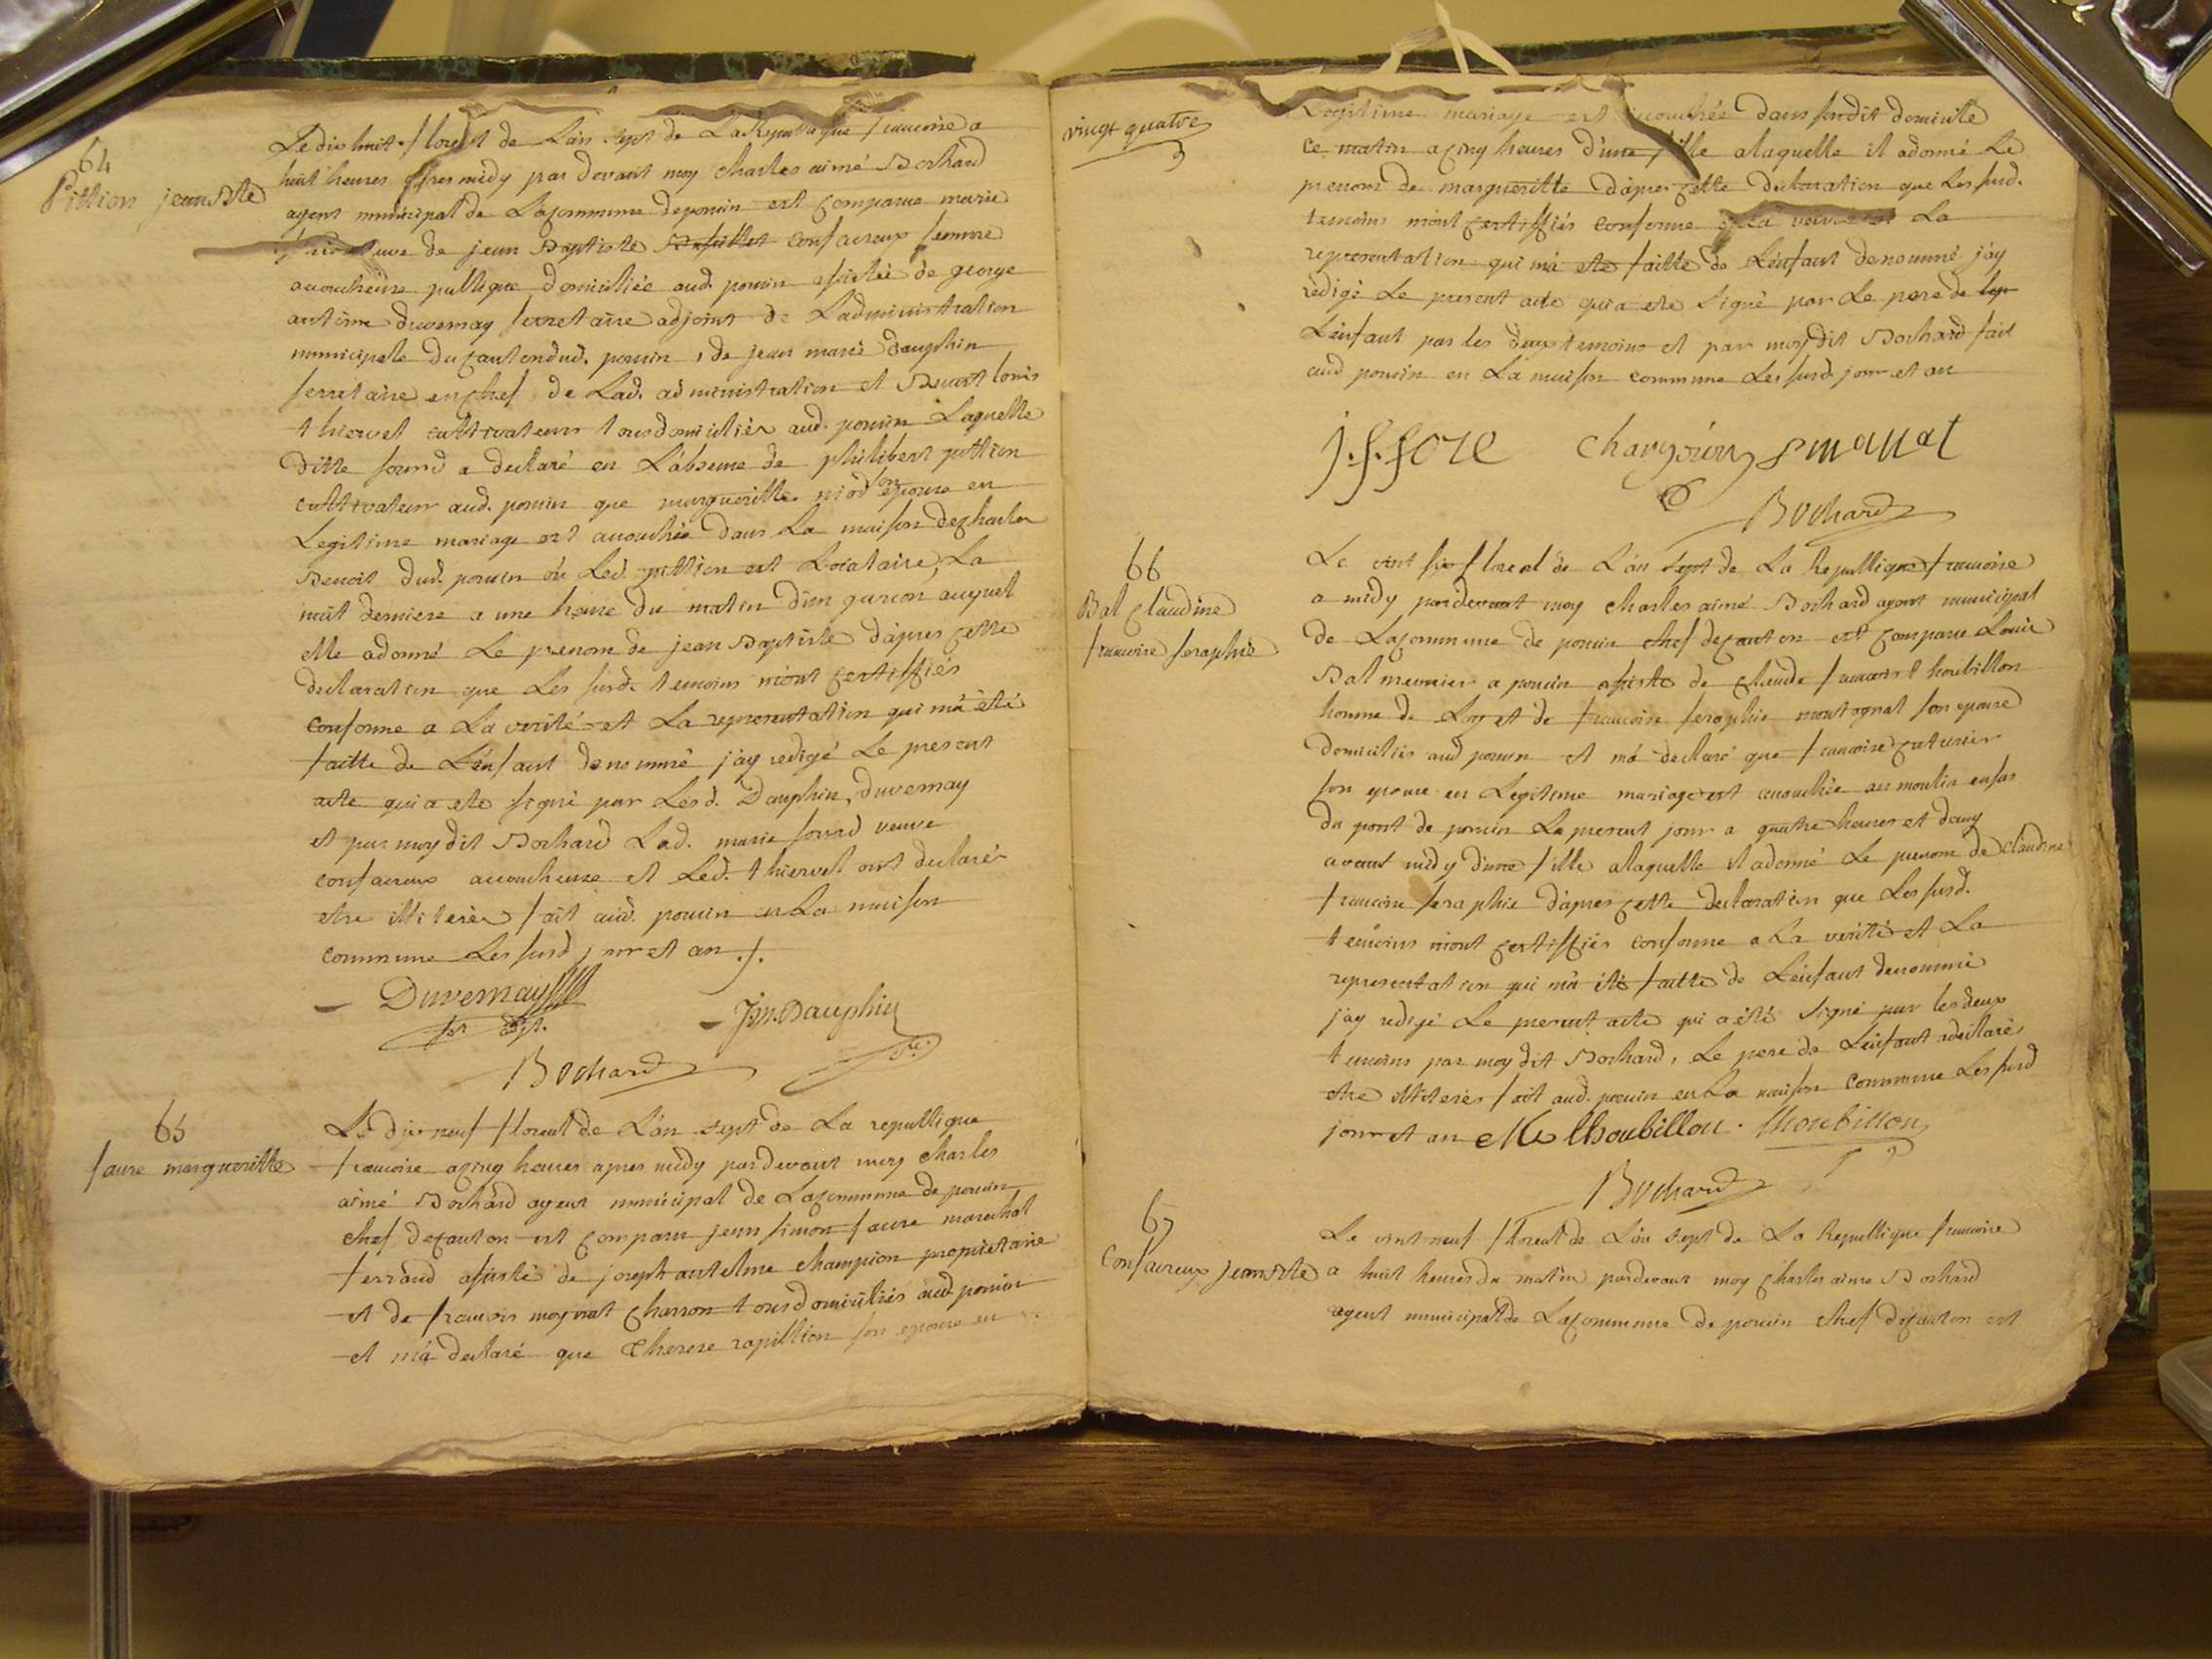 64
Pittion jean Bte
Le dix huit floreal de L'an sept de La Republique francoise a
huit heures apres midy par devant moy charles aimé Bochard
agent municipal de La commune de poncin est comparue marie
veuve de jean Baptiste confacreux femme
accoucheuse publique domiciliée aud. poncin assistée de george
antéme duvernay secretaire adjoint de L'administration
municipale du canton dud. poncin, de jean marie dauphin
secretaire en chef de Lad. administration et louis
thiervet cultivateurs tous domiciliés aud. poncin Laquelle
ditte sourd a declaré en L'absence de philibert pittion
cultivateur aud. poncin que margueritte niod son epouse en
Legitime mariage est accouchée dans La maison de charles
Benoit dud. poncin ou Led. pittion est Locataire, La
nuit derniere a une heure du matin d'un garcon auquel
elle a donné Le prenom de jean Baptiste d'apres cette
declaration que Les susd. temoins m'ont certiffiés
conforme a La verité et La representation qui m'a été
faitte de L'enfant denommé j'ay redigé Le present
acte qui a ete signé par Lesd. Dauphin, duvernay
et par moy dit Bochard Lad. marie sourd veuve
confacreux accoucheuse et Led. thiervet ont declarés
etre illiterés fait aud. poncin en La maison
commune Les susd jour et an ./.
Duvernay
ser adjt.
J.m. Dauphin
sre.
Bochard
65
faure margueritte
Le dix neuf floreal de L'an sept de La republique
francoise a cinq heures apres midy par devant moy charles
aimé Bochard agent municipal de La commune de poncin
chef de canton est comparu jean simon faure marechal
ferrand assisté de joseph antelme champion proprietaire
et de francois moynat charron tous domiciliés aud. poncin
et m'a declaré que therese rapillion son epouse en
vingt quatre
Legitime mariage est accouchée dans susdit domicile
ce matin a cinq heures d'une fille a laquelle il a donné Le
prenom de margueritte d'apres cette declaration que Les susd.
temoins m'ont certiffiés conforme a La verité et La
representation qui m'a eté faitte de L'enfant denommé j'ay
rédigé Le present acte qui a ete signé par Le pere de
L'enfant par les deux temoins et par moy dit Bochard fait
aud poncin en La maison commune Les susd. jour et an
j.s. fore
Bochard
66
Bal claudine
francoise seraphie
Le vint six floreal de L'an sept de La Republique francoise
a midy pardevant moy charles aimé Bochard agent municipal
de La commune de poncin chef de canton est comparu Louis
Bal meunier a poncin assisté de claude francois thoubillon
homme de Loy et de francoise seraphie montagnat son epouse
domiciliés aud poncin et m'a declaré que francoise couturier
son epouse en Legitime mariage est accouchée au moulin
du pont de poncin Le present jour a quatre heures et demy
avant midy d'une fille a laquelle il a donné Le prenom de claudine
francoise seraphie d'apres cette declaration que Les susd.
temoins m'ont certiffiés conforme a La verité et La
representation qui m'a été faitte de L'enfant denommé
j'ay redigé Le present acte qui a été signé par les deux
temoins par moy dit Bochard, Le pere de L'enfant a declaré
etre illiteres fait aud. poncin en La maison commune Les susd
jour et an thoubillon. thoubillon
Bochard
67
Confacreux jean Bte
Le vint neuf floreal de L'an sept de La Republique francoise
a huit heures du matin pardevant moy charles aime Bochard
agent municipal de La commune de poncin chef de canton est